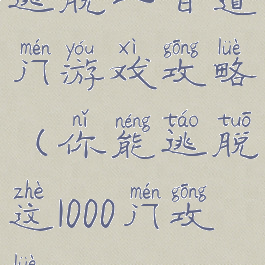 逃脱一百道
mén yóu xì gōng lüè
门游戏攻略
nǐ néng táo tuō
（你能逃脱
zhè mén gōng
这1000门攻
lüè